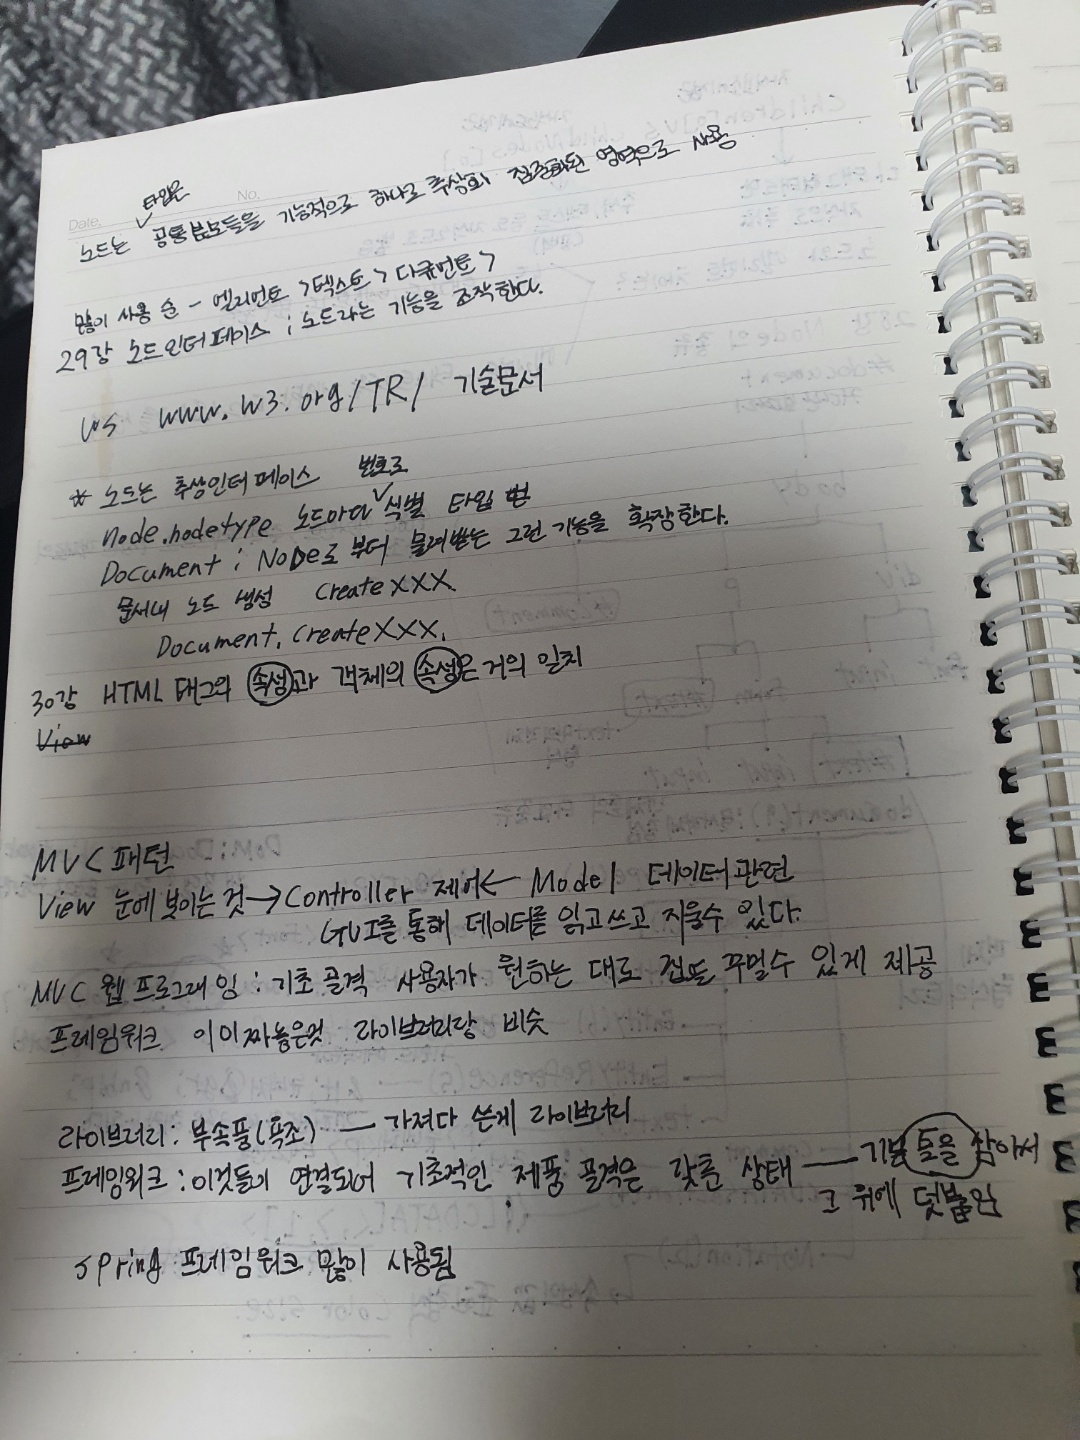 Date. No.
타입은
노드는 공통분모들을 기능적으로 하나로 추상화 집준화된 영역으로 사용
많이 사용 순 - 엘리먼트 > 텍스트 > 다큐먼트 >
29강 노드인터페이스 ; 노드라는 기능을 조작한다.
vs www.w3.org/TR/ 기술문서
* 노드는 추상인터페이스 번호로
Node.nodetype 노드마다 식별 타입
Document ; Node로 부터 물려받는 그런 기능을 확장한다.
문서내 노드 생성 CreateXXX
Document.CreateXXX.
30강 HTML 태그의 속성과 객체의 속성은 거의 일치
View
MVC 패턴
View 눈에 보이는 것 → Controller 제어 ← Model 데이터관련
GUI를 통해 데이터를 읽고 쓰고 지울수 있다.
MVC 웹 프로그래밍 : 기초 골격 사용자가 원하는 대로 꾸밀수 있게 제공
프레임워크 이미 짜놓은것 라이브러리랑 비슷
라이브러리 : 부속품(목조) — 가져다 쓴게 라이브러리
프레임워크 : 이것들이 연결되어 기초적인 제품 골격은 갖춘 상태 — 기본 틀을 잡아서
그 위에 덧붙임
Spring 프레임워크 많이 사용됨